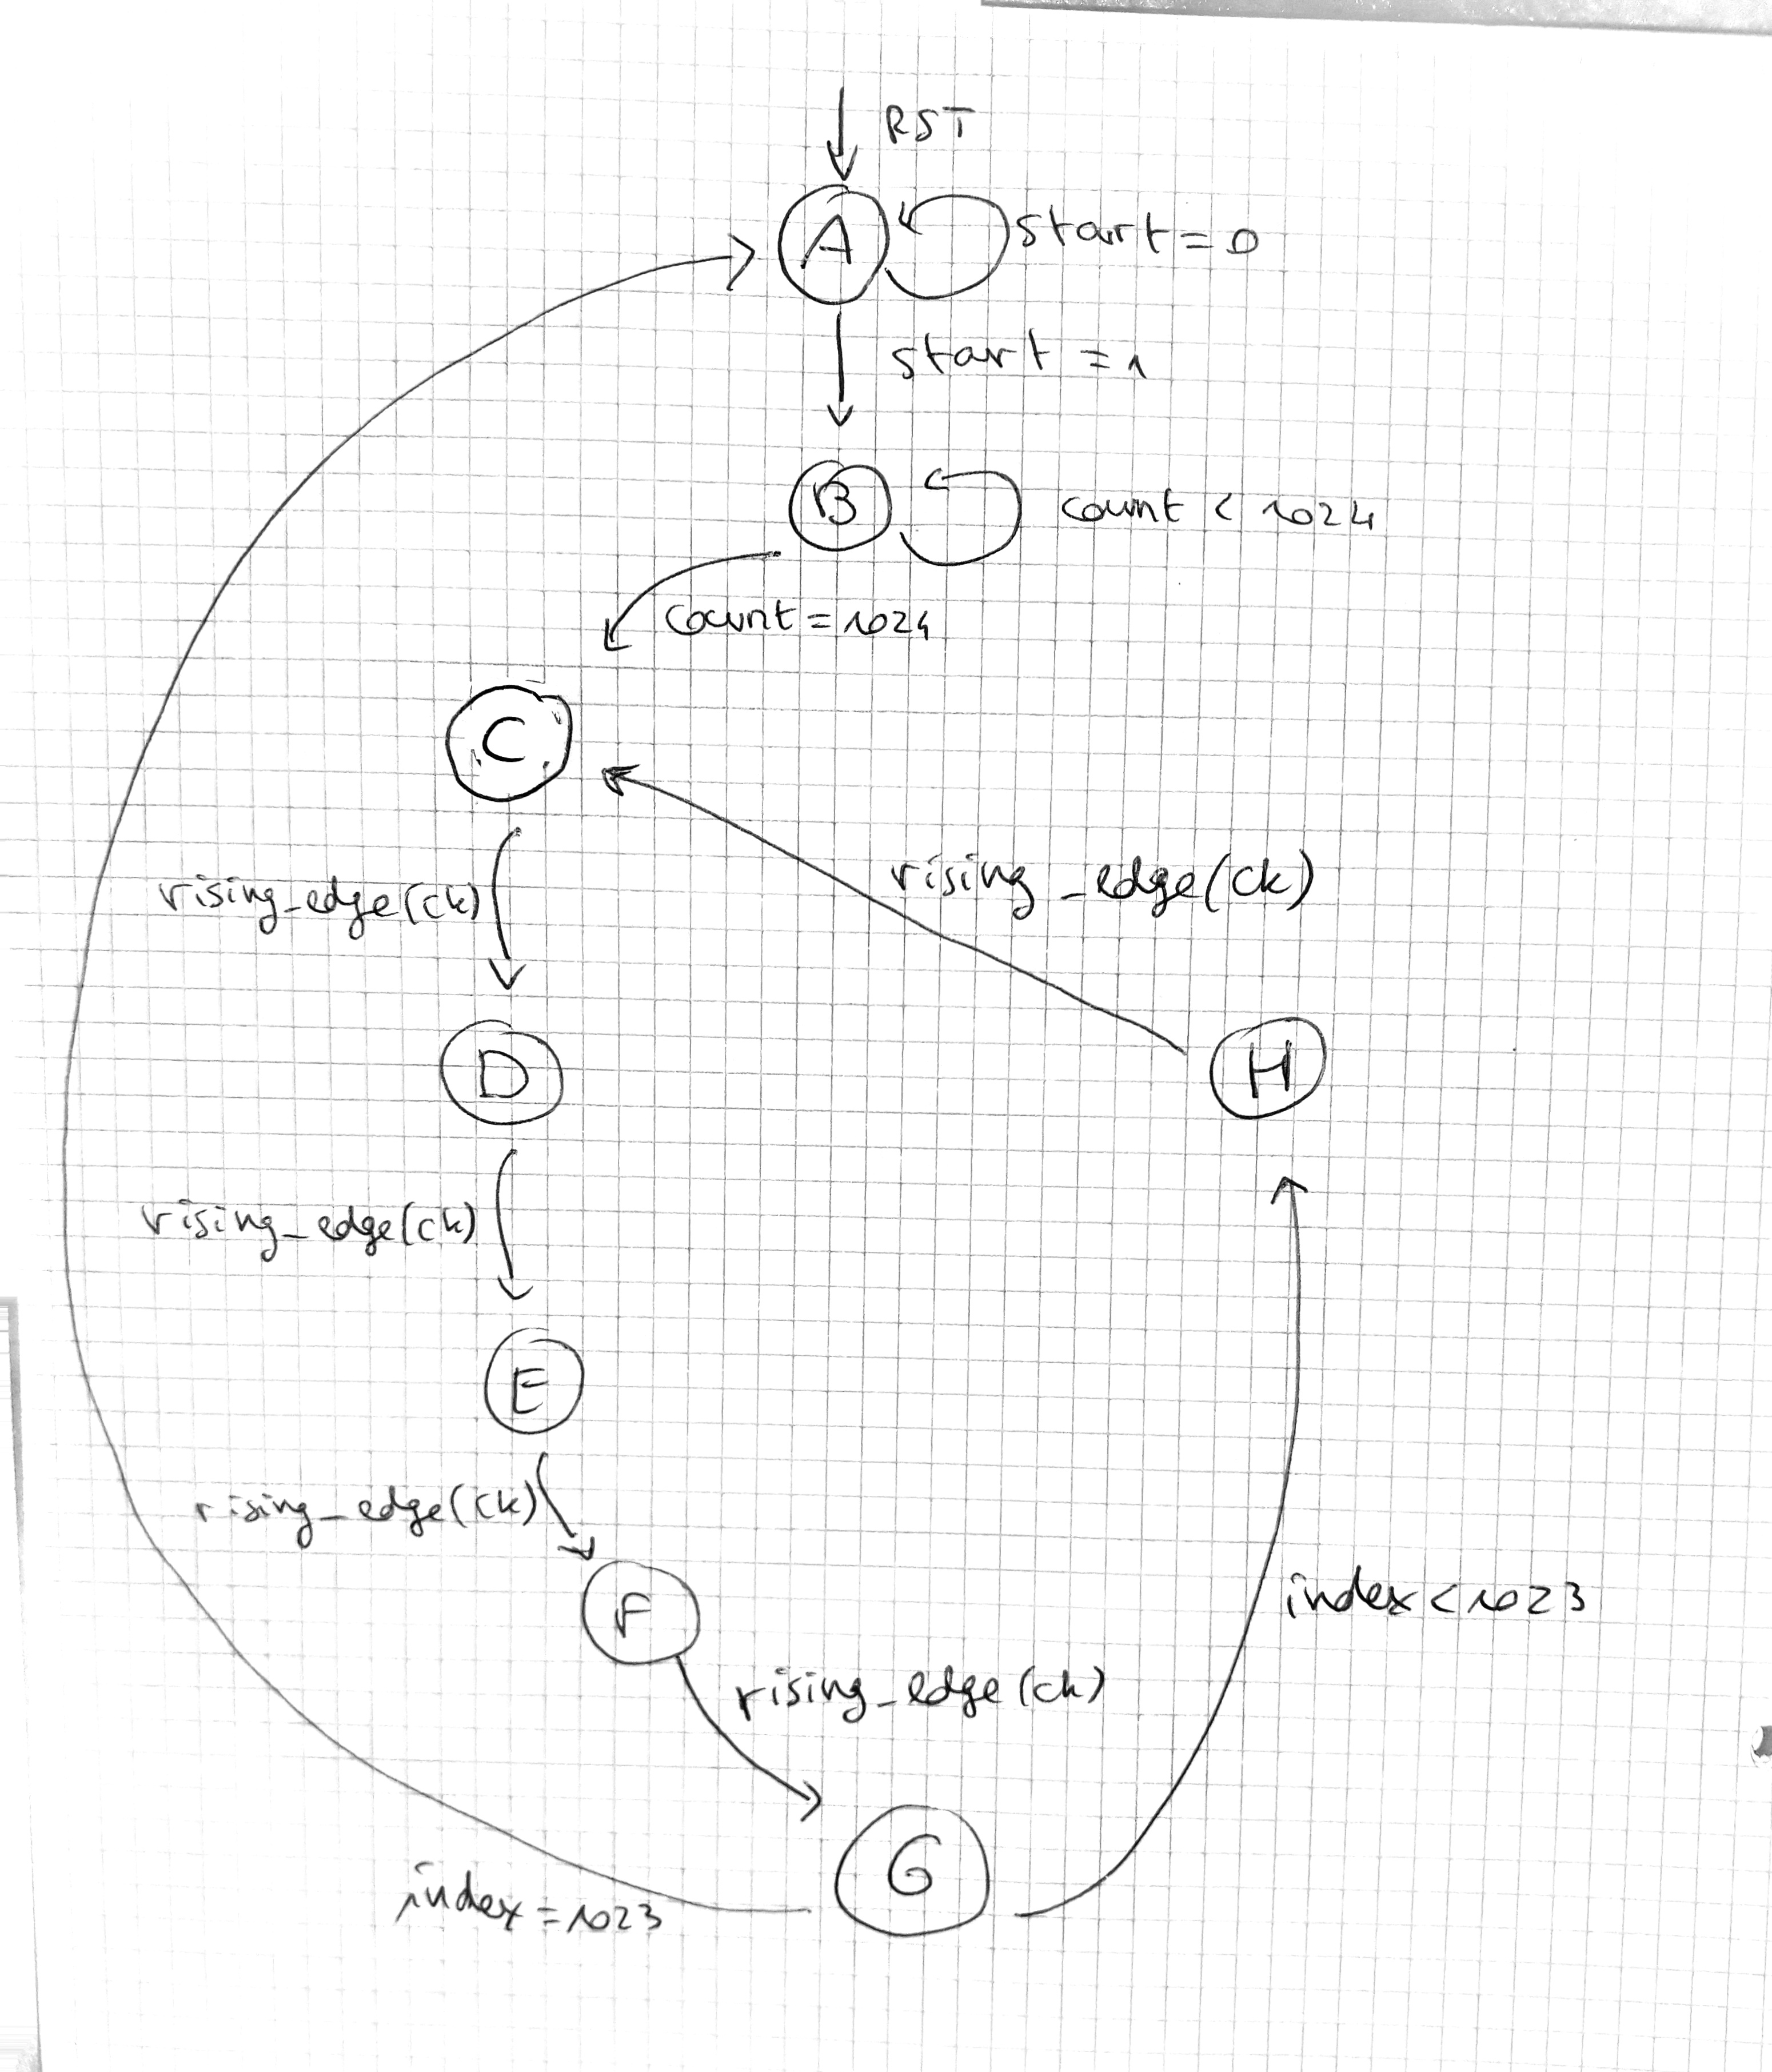 RST
A
start=0
start=1
B
count < 1024
count=1024
C
rising_edge(ck)
rising_edge(ck)
D
H
rising_edge(ck)
E
rising_edge(ck)
F
index<1023
rising_edge(ck)
G
index=1023